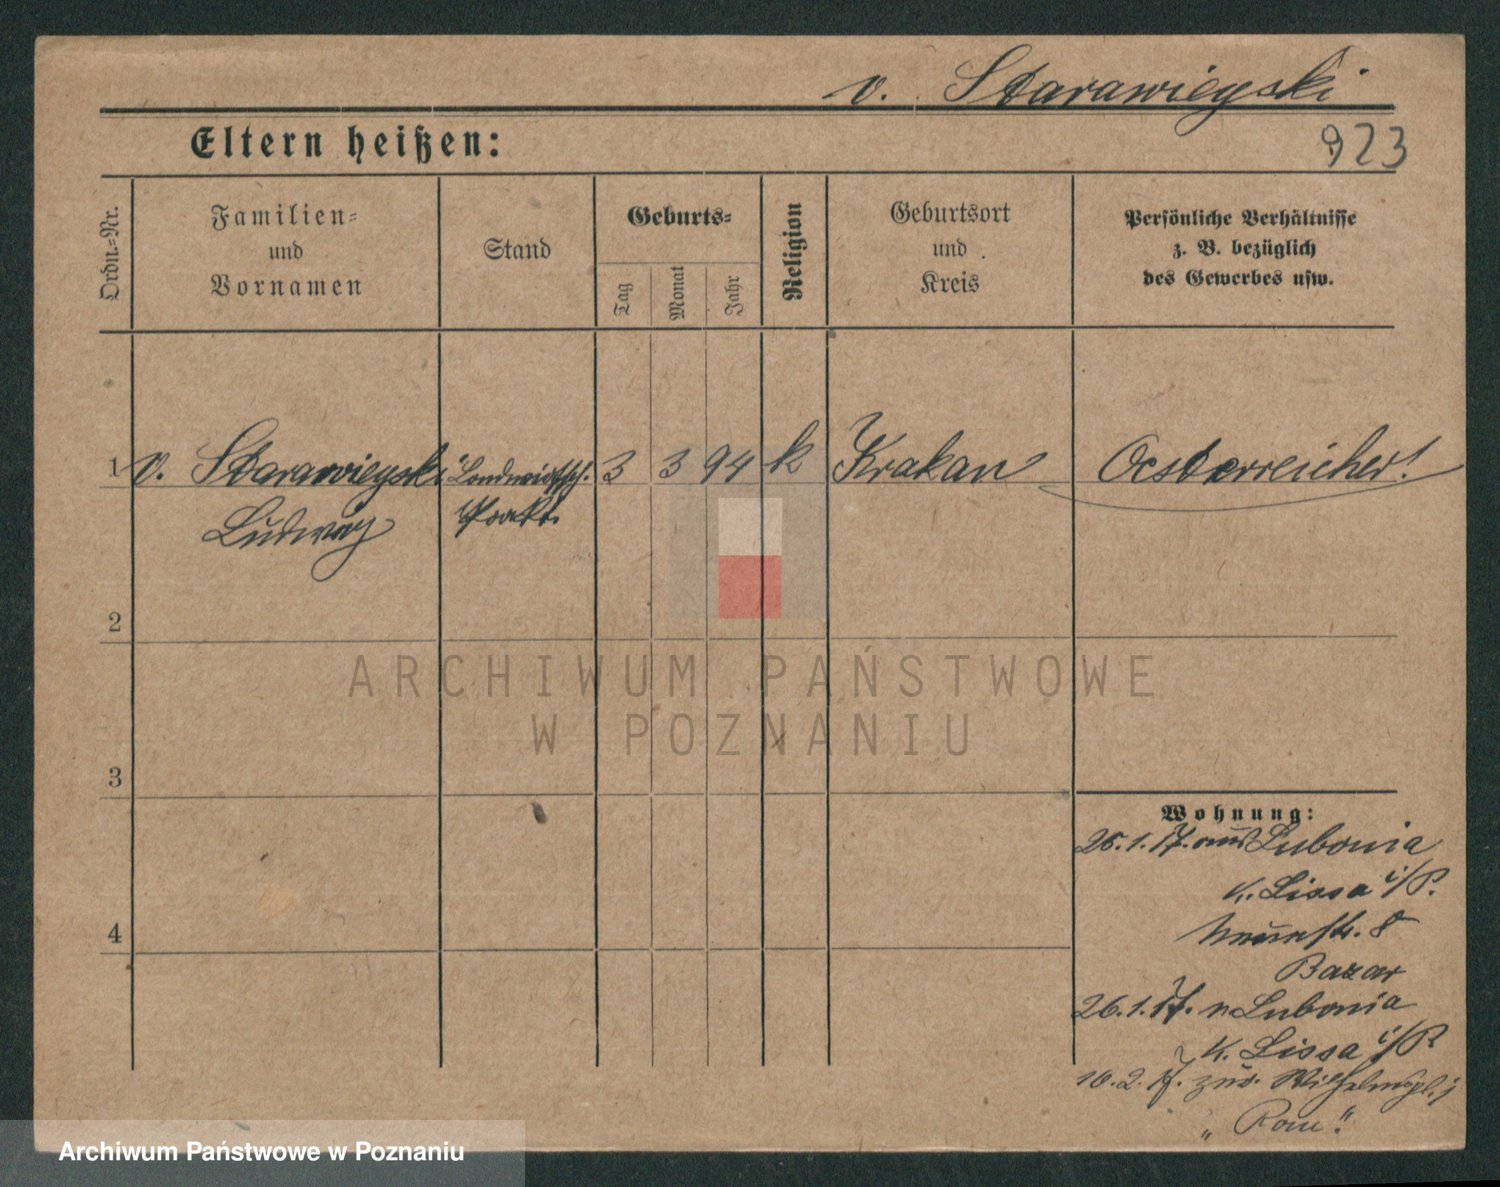 v. Starawieyski
Eltern heißen:
923
Ordn.-Nr.
Familien-
und
Vornamen
Stand
Geburts-
Tag
Monat
Jahr
Religion
Geburtsort
und
Kreis
Persönliche Verhältnisse
z. B. bezüglich
des Gewerbes usw.
1 v. Starawieyski Landwirtsch. 3 3 94 k Krakau Oesterreicher!
Ludwig Prakt.
2
3
4
Wohnung:
25.1.17. aus Lubonia
K. Lissa i/P.
Neuestr. 8
Bazar
26.1.17. n Lubonia
K. Lissa i/P
10.2.17. zur. Wilhelmspl.
„Rom“.
ARCHIWUM PAŃSTWOWE
W POZNANIU
Archiwum Państwowe w Poznaniu